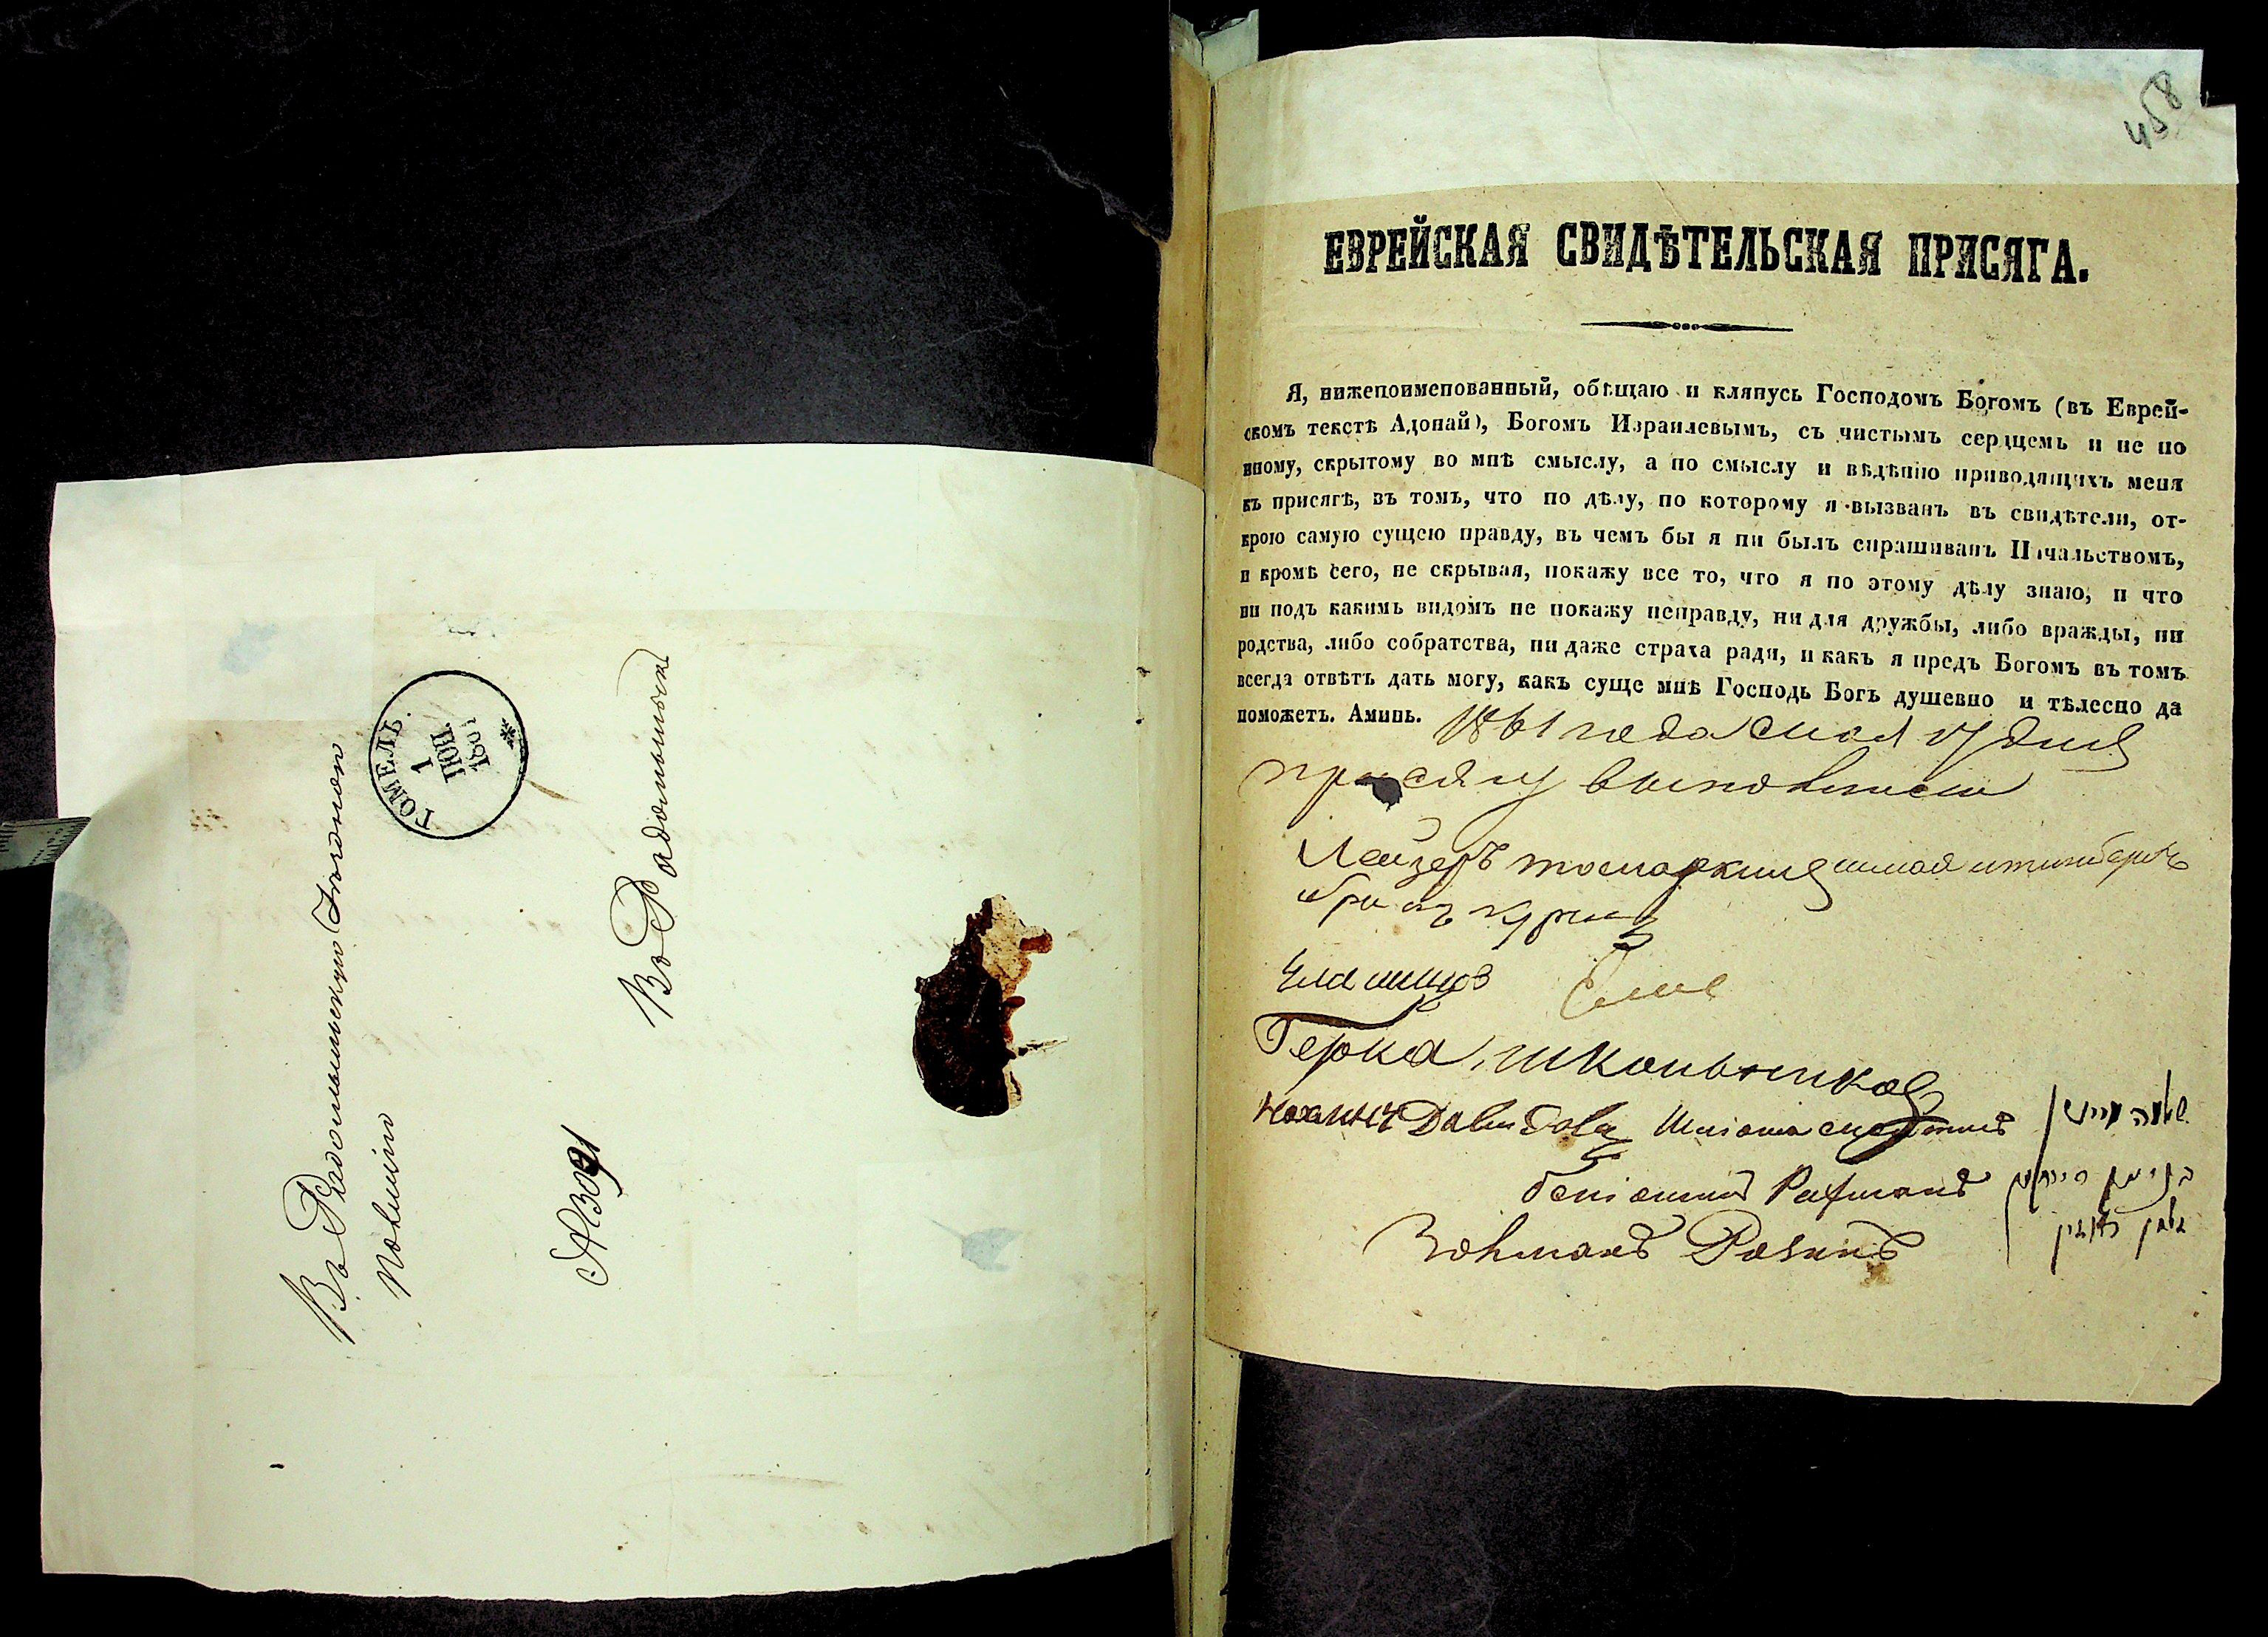 Въ Радомышльскую Городскую
Полицію
ГОМЕЛЬ.
1
ІЮН.
1861
Въ Радомысль
№ 3091
458
ЕВРЕЙСКАЯ СВИДѢТЕЛЬСКАЯ ПРИСЯГА.
Я, нижепоименованный, обѣщаю и клянусь Господомъ Богомъ (въ Еврей-
скомъ текстѣ Адонай), Богомъ Израилевымъ, съ чистымъ сердцемъ и не по
иному, скрытому во мнѣ смыслу, а по смыслу и вѣдѣнію приводящихъ меня
къ присягѣ, въ томъ, что по дѣлу, по которому я вызванъ въ свидѣтели, от-
крою самую сущею правду, въ чемъ бы я ни былъ спрашиванъ Начальствомъ,
и кромѣ сего, не скрывая, покажу все то, что я по этому дѣлу знаю, и что
ни подъ какимъ видомъ не покажу неправду, ни для дружбы, либо вражды, ни
родства, либо собратства, ни даже страха ради, и какъ я предъ Богомъ въ томъ
всегда отвѣтъ дать могу, какъ суще мнѣ Господь Богъ душевно и тѣлесно да
поможетъ. Аминь. 1861 года мая 17 дня
присягу выполнили
Лейзеръ
Герка Школьников
Давидовъ
беніаминъ
Залманъ Рабинъ